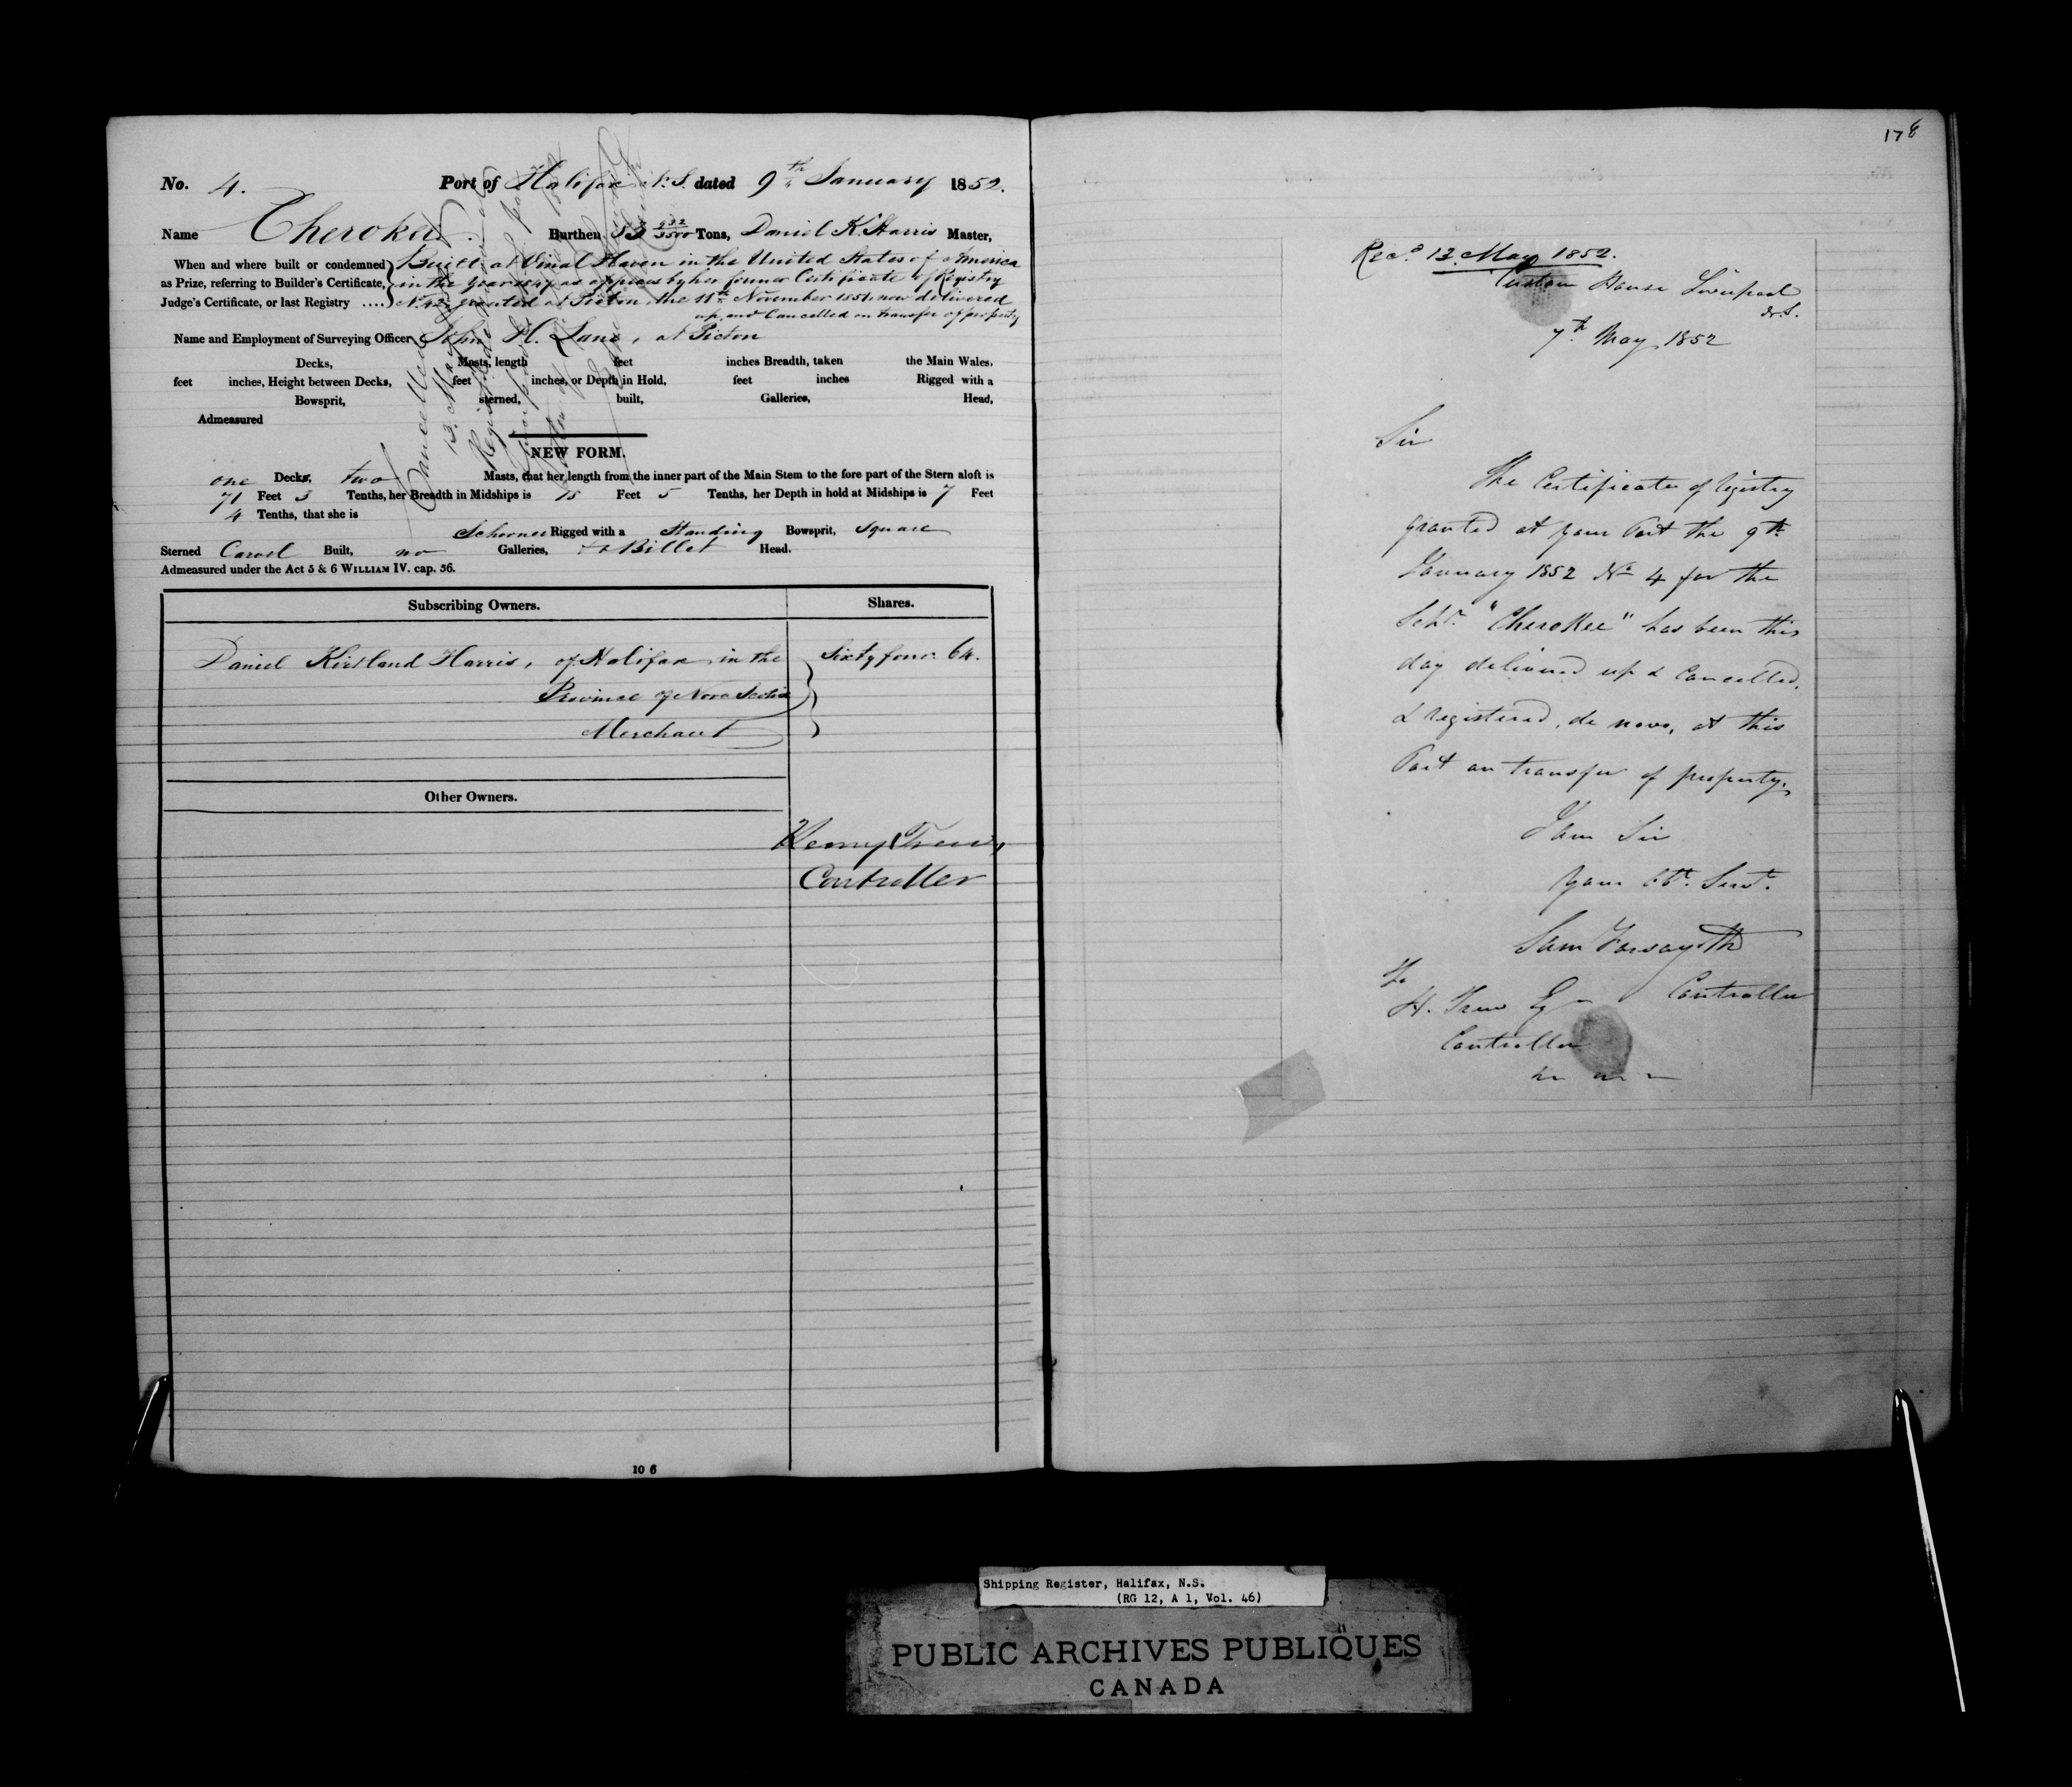 No. 4. Port of Halifax N.S. dated 9th January 1852.
Name Cherokee. Burthen 53 Tons, Daniel K. Harris Master,
When and where built or condemned Built at Vinal Haven in the United States of America
as Prize, referring to Builder's Certificate, in the year as appears by her former Certificate of Registry
Judge's Certificate, or last Registry .... No. 42 granted at Pictou the 11th November 1851 now delivered
up and Cancelled on transfer of property
Name and Employment of Surveying Officer John H. Lane, at Pictou
Decks, Masts, length feet inches Breadth, taken the Main Wales,
feet inches, Height between Decks, feet inches, or Depth in Hold, feet inches Rigged with a
Bowsprit, sterned, built, Galleries, Head,
Admeasured
Cancelled
13. May
NEW FORM.
one Decks, two Masts, that her length from the inner part of the Main Stem to the fore part of the Stern aloft is
71 Feet 3 Tenths, her Breadth in Midships is 18 Feet 5 Tenths, her Depth in hold at Midships is 7 Feet
4 Tenths, that she is
Schooner Rigged with a Standing Bowsprit, Square
Sterned Carvel Built, no Galleries, Billet Head.
Admeasured under the Act 5 & 6 WILLIAM IV. cap. 56.
Subscribing Owners. Shares.
Daniel Kirkland Harris, of Halifax in the Sixty four. 64.
Province of Nova Scotia
Merchant
Other Owners.
Henry Trew,
Controller
10 6
178
Recd. 13. May 1852.
Custom House Liverpool
N.S.
7th May 1852
Sir
The Certificate of registry
granted at your Port the 9th
January 1852 No 4 for the
Schr. "Cherokee" has been this
day delivered up & Cancelled,
& registered, de novo, at this
Port on transfer of property.
I am Sir
Your Obt. Servt.
Sam Forsayth
Controller
To
H. Trew Esq
Controller
Shipping Register, Halifax, N.S.
(RG 12, A 1, Vol. 46)
PUBLIC ARCHIVES PUBLIQUES
CANADA